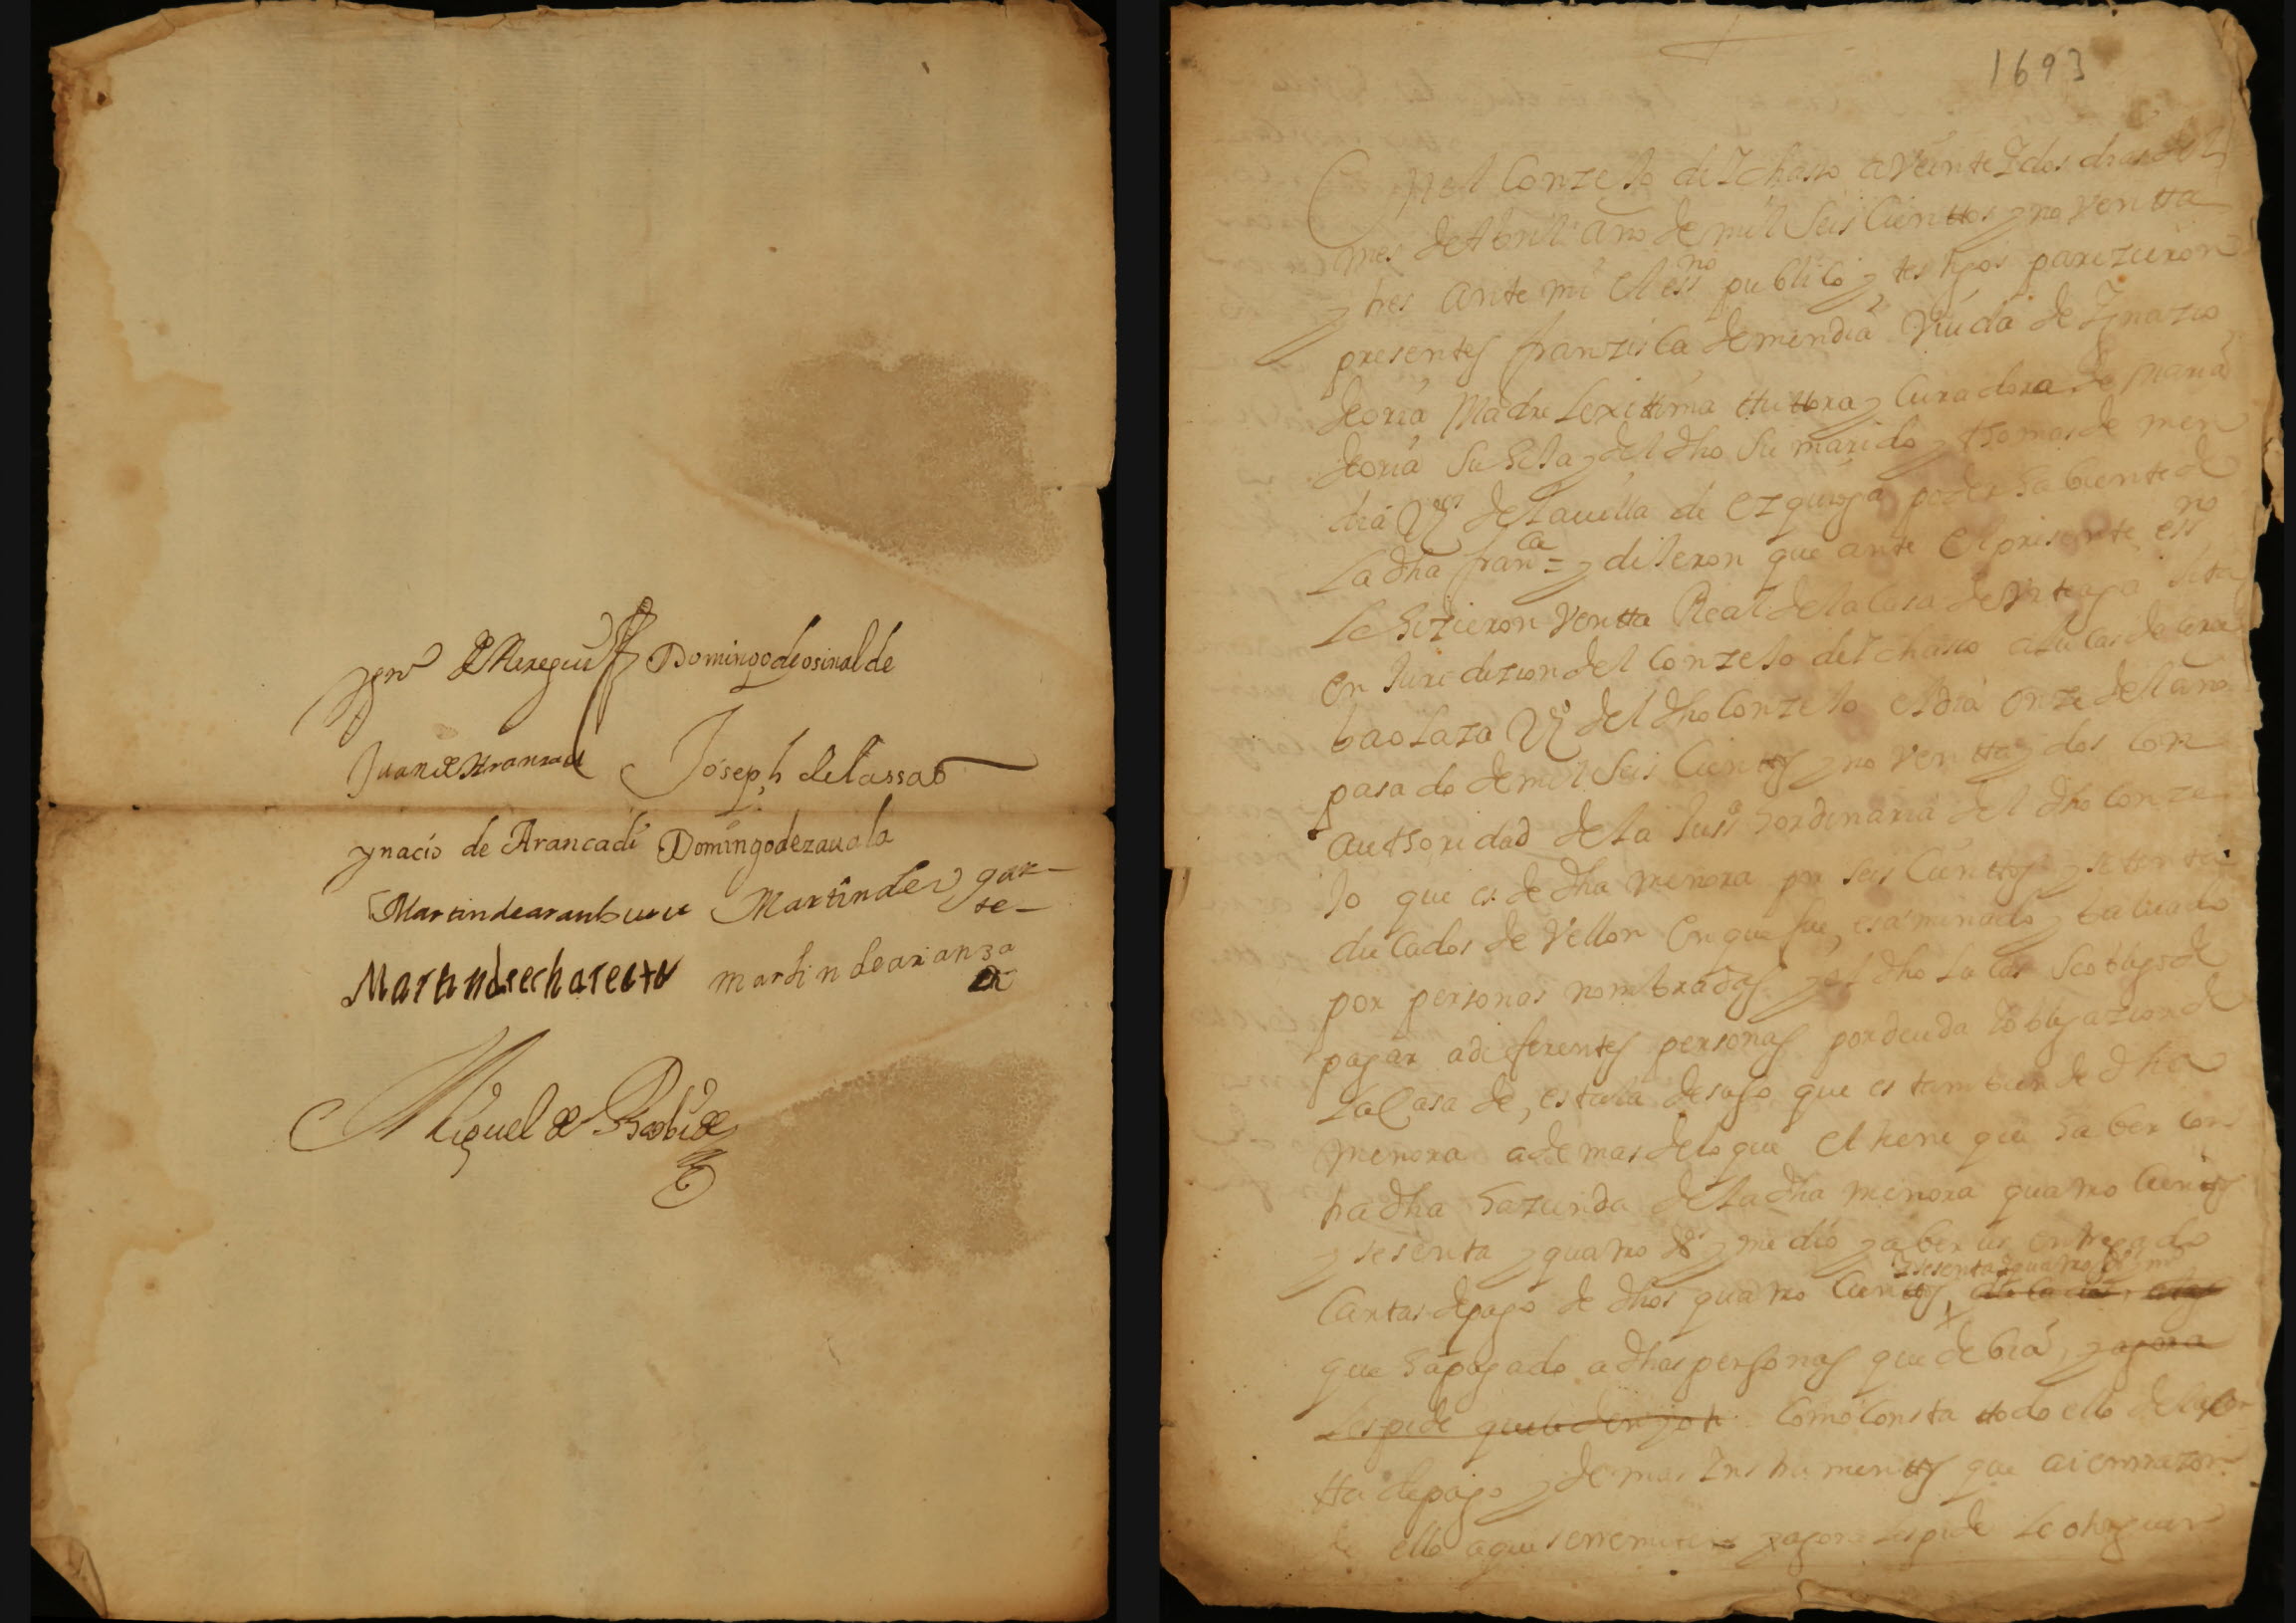 Domingo de osinalde
Juan de Aranzadi Joseph de lassao
ynacio de Arancadi Domingo de zauala
Martin de aranburu Martin de ygar-
se-
Martin de echareeta martin de arianza
Miguel de
1693
En el Conzejo de Ichasso a Veinte Y dos dias del
mes de Abril año de mil Seis Cienttos y noventta
y tres ante mi el essno publico y testigos parezieron
presentes franzisca de mendia Viuda de Ygnazio
de oria Madre Lexittima ttuttora y Curadora de Maria
de oria Su Hija y del dho Su marido y thomas de men
dia Vs de la uilla de ezquioga poder habiente de
La dha franca y dijeron que ante el presente essno
Le hizieron Ventta Real de la Casa de Urteaga sita
en Juridizion del Conzejo de Ichasso a Lucas de
baolaza Vo del dho Conzejo el dia onze del año
pasado de mil Seis Cienttos y noventta y dos Con
authoridad de la Jussa hordinaria del dho Conze
jo que es de dha menora en seis Cienttos y settenta
ducados de Vellon en que fue esaminado y baluado
por personas nombradas y el dho Lucas Se obligo de
pagar a diferentes personas por deuda Y obligazion de
La Casa de que es tambien de dha
menora ademas de lo que el tiene que haber con
tra dha hazienda de la dha menora quatro Cienttos
y sesenta y quatro ds y medio y aber entregado
Y sesenta Y quatro ds y mo
Cartas de pago de dhos quatro Cienttos ducados
que ha pagado a dhas personas que debia, y agora
les pide que le den Como Consta ttodo ello de la Car
tta de pago y demas Instrumentos que
de ello aqui se rremiten y agora les pide Le otorguen